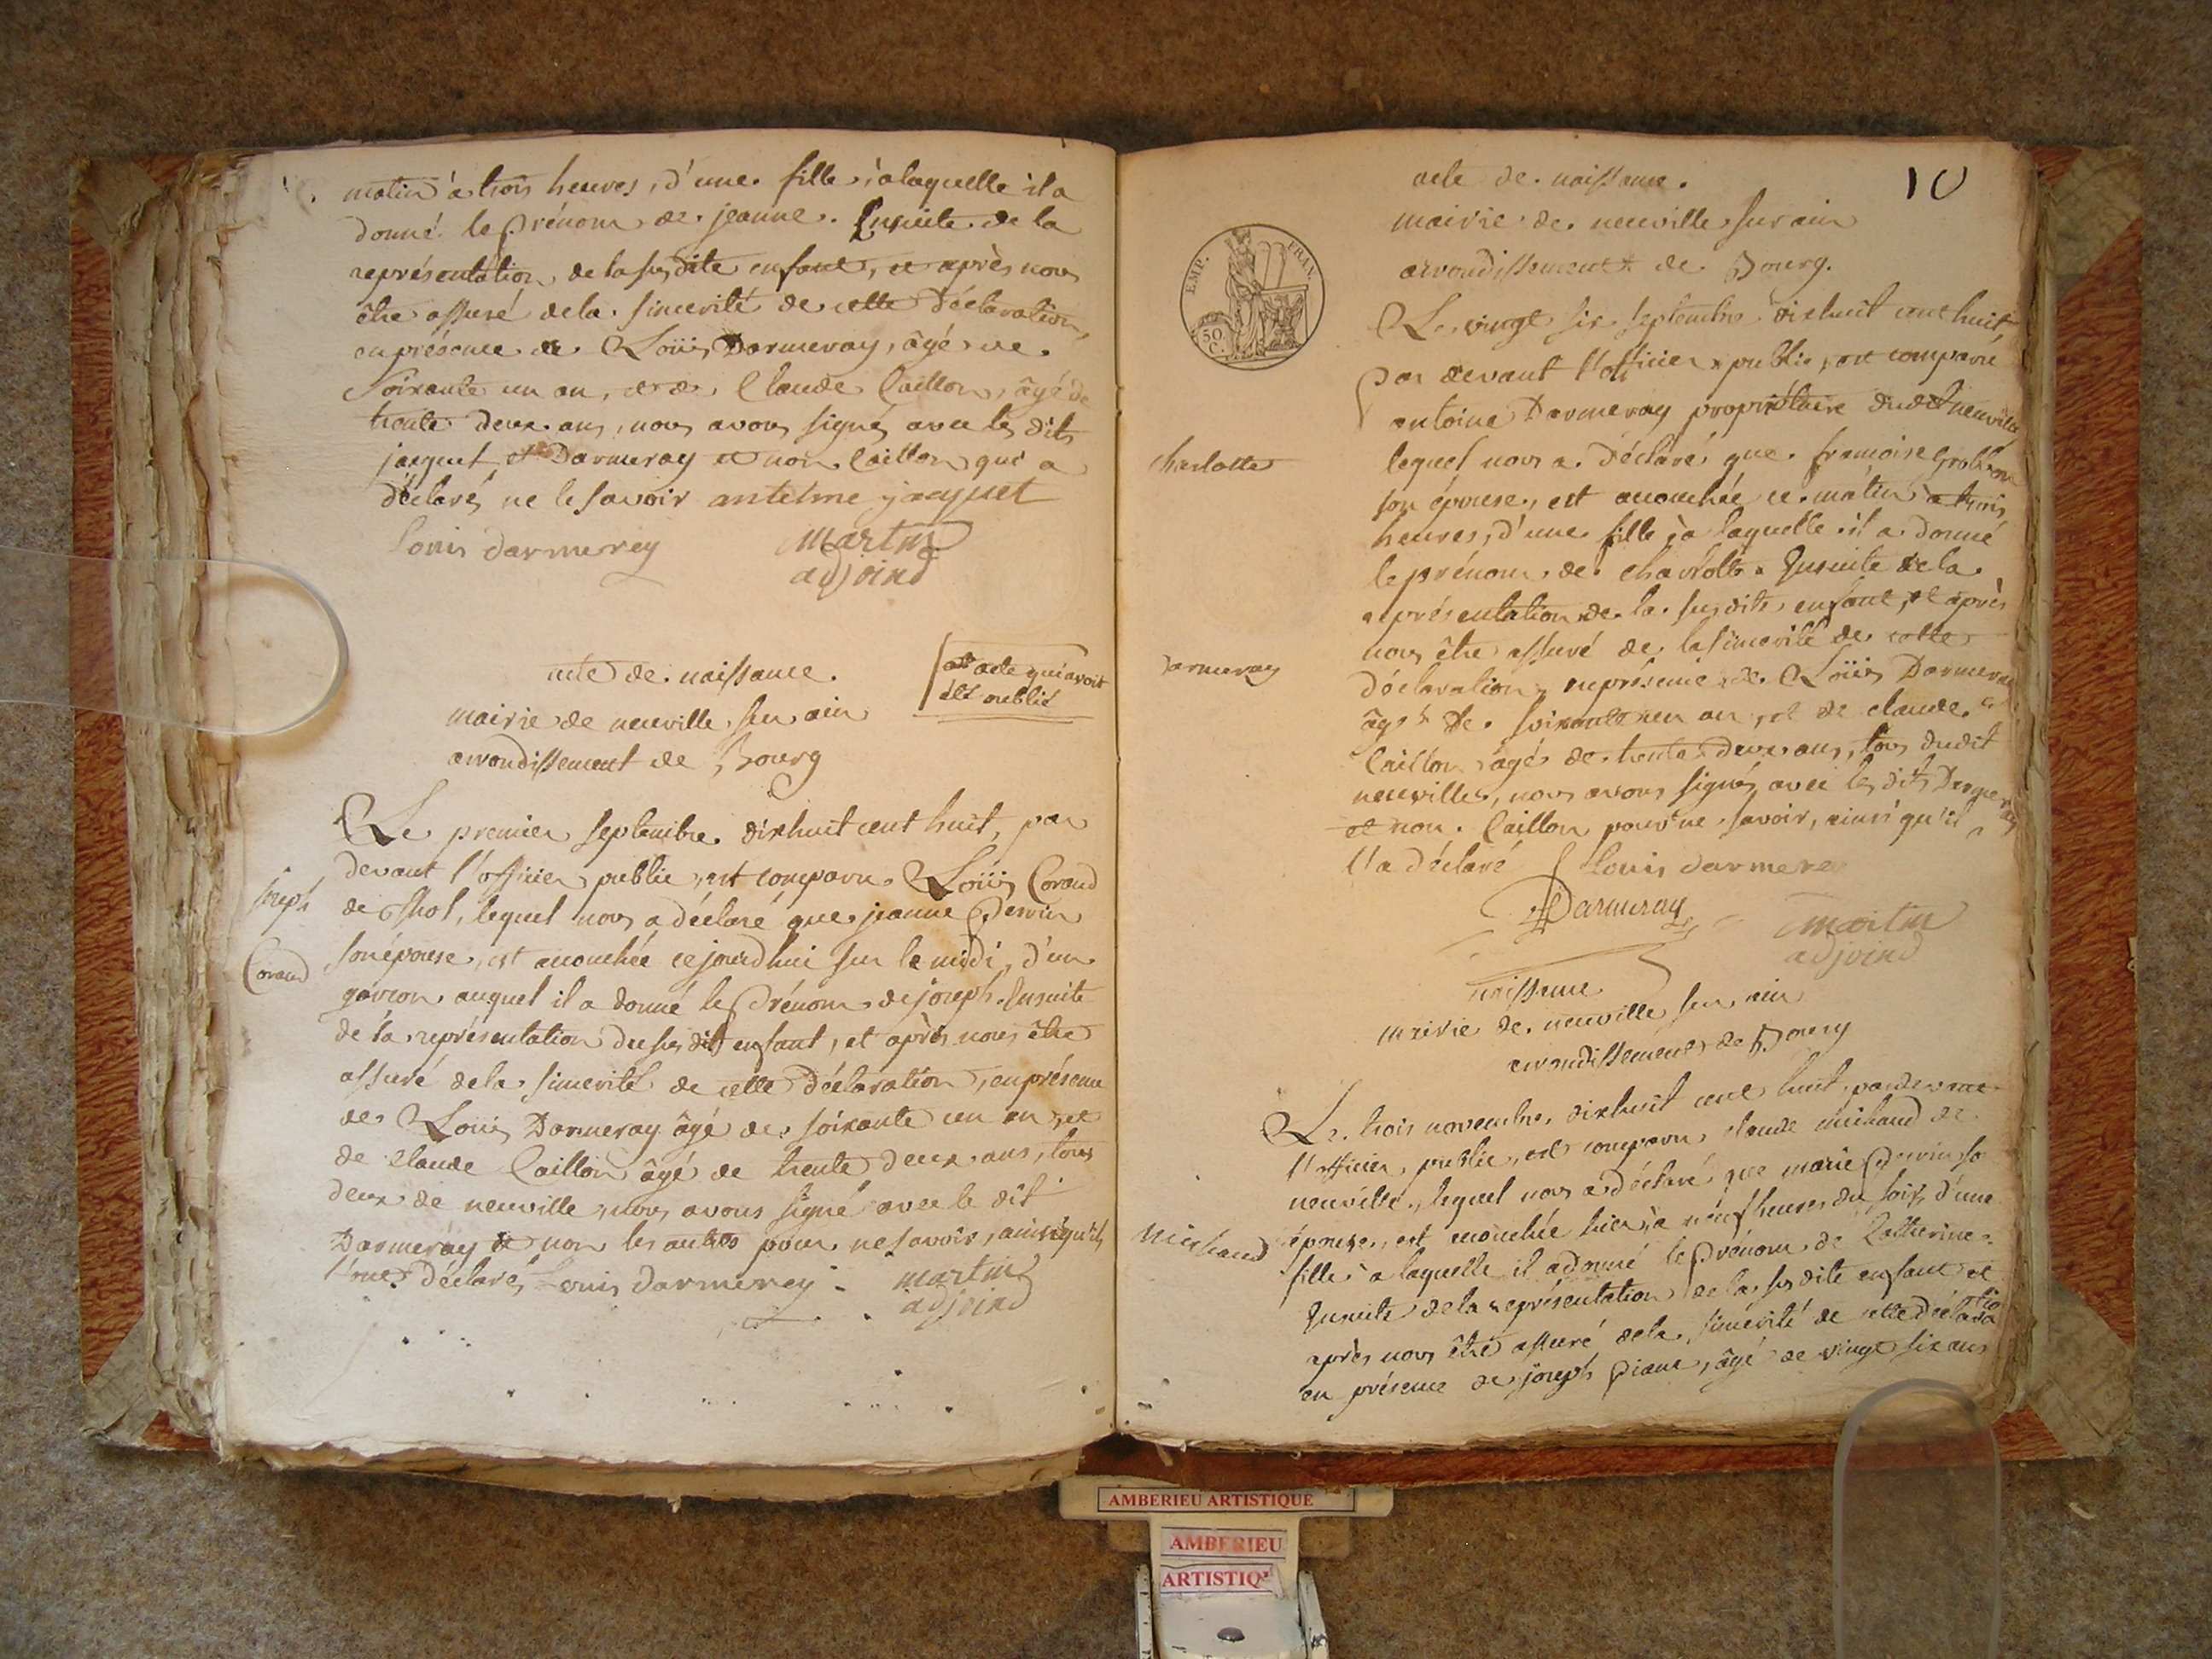 matin à trois heures, d'une fille, à laquelle il a
donné le prénom de jeanne. Ensuite de la
représentation de la susdite enfant, et après nous
être assuré de la sincerité de cette déclaration,
en présence de Loüis Darmeray, âgé de
soixante un an, et de Claude Caillon, âgé de
trente deux ans, nous avons signés avec les dits
jacquet et Darmeray et non Caillon qui a
déclaré ne le savoir antelme jacquet
Louis darmerey martin
adjoind
acte de naissance.
acte qui avoit
été oublié
mairie de neuville sur ain
arrondissement de Bourg
Le premier septembre dixhuit cent huit, par
devant l'officier public, est comparu Loüis Corand
joseph
de thol, lequel nous a déclaré que jeanne Perrin
Corand
son épouse, est acouchée ce jourdhui sur le midi, d'un
garcon auquel il a donné le prénom de joseph. Ensuite
de la représentation du susdit enfant, et après nous être
assuré de la sincerité de cette déclaration, en présence
de Loüis Darmeray âgé de soixante un an, et
de Claude Caillon âgé de trente deux ans, tous
deux de neuville, nous avons signé avec le dit
Darmeray et non les autres pour ne savoir, ainsi qu'ils
l'ont déclaré, Louis darmerey martin
adjoind
10
acte de naissance.
mairie de neuville sur ain
arrondissement de Bourg.
EMP. FRAN.
50 C.
Le vingt six septembre dixhuit cent huit
Par devant l'officier public, est comparu
antoine Darmeray propriétaire dudit neuville
charlotte
lequel nous a déclaré que francoise
son épouse, est acouchée ce matin à trois
heures, d'une fille, à laquelle il a donné
le prénom de charlotte. Ensuite de la
représentation de la susdite enfant, et après
nous être assuré de la sincerité de cette
Darmeray
déclaration, en présence de Loüis Darmeray
âgé de soixante un an, et de claude
Caillon âgé de trente deux ans, tous dudit
neuville, nous avons signés avec les dits Darmeray
et non Caillon pour ne savoir, ainsi qu'il
l'a déclaré Louis darmerey
Darmeray
martin
adjoind
naissance
mairie de neuville sur ain
arrondissement de Bourg
Le trois novembre dixhuit cent huit, pardevant
l'officier public, est comparu claude michaud de
neuville, lequel nous a déclaré que marie Perrin so
michaud
épouse, est acouchée hier, à neuf heures du soir, d'une
fille à laquelle il a donné le prénom de Catherine.
Ensuite de la représentation de la susdite enfant et
après nous être assuré de la sincérité de cette déclaration
en présence de joseph Piane, âgé de vingt six ans